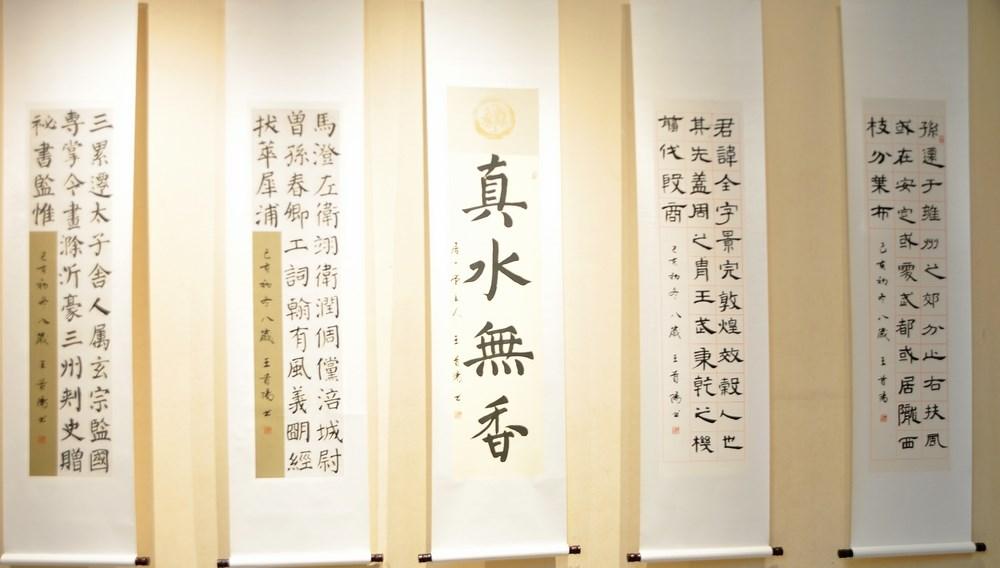 孫遷于雍州之郊分止右扶風
或在安定或處武都或居隴西
枝分葉布
己亥初冬 八歲 王
君諱全字景完敦煌效穀人也
其先蓋周之胄王武秉乾之機
翦伐殷商
己亥初冬 八歲 王
真水無香
馬澄左衛翊衛潤倜儻涪城尉
曾孫春卿工詞翰有風義明經
拔萃犀浦
己亥初冬 八歲 王
三累遷太子舍人属玄宗監國
専掌令畫滁沂豪三州刾史贈
祕書監惟
己亥初冬 八歲 王